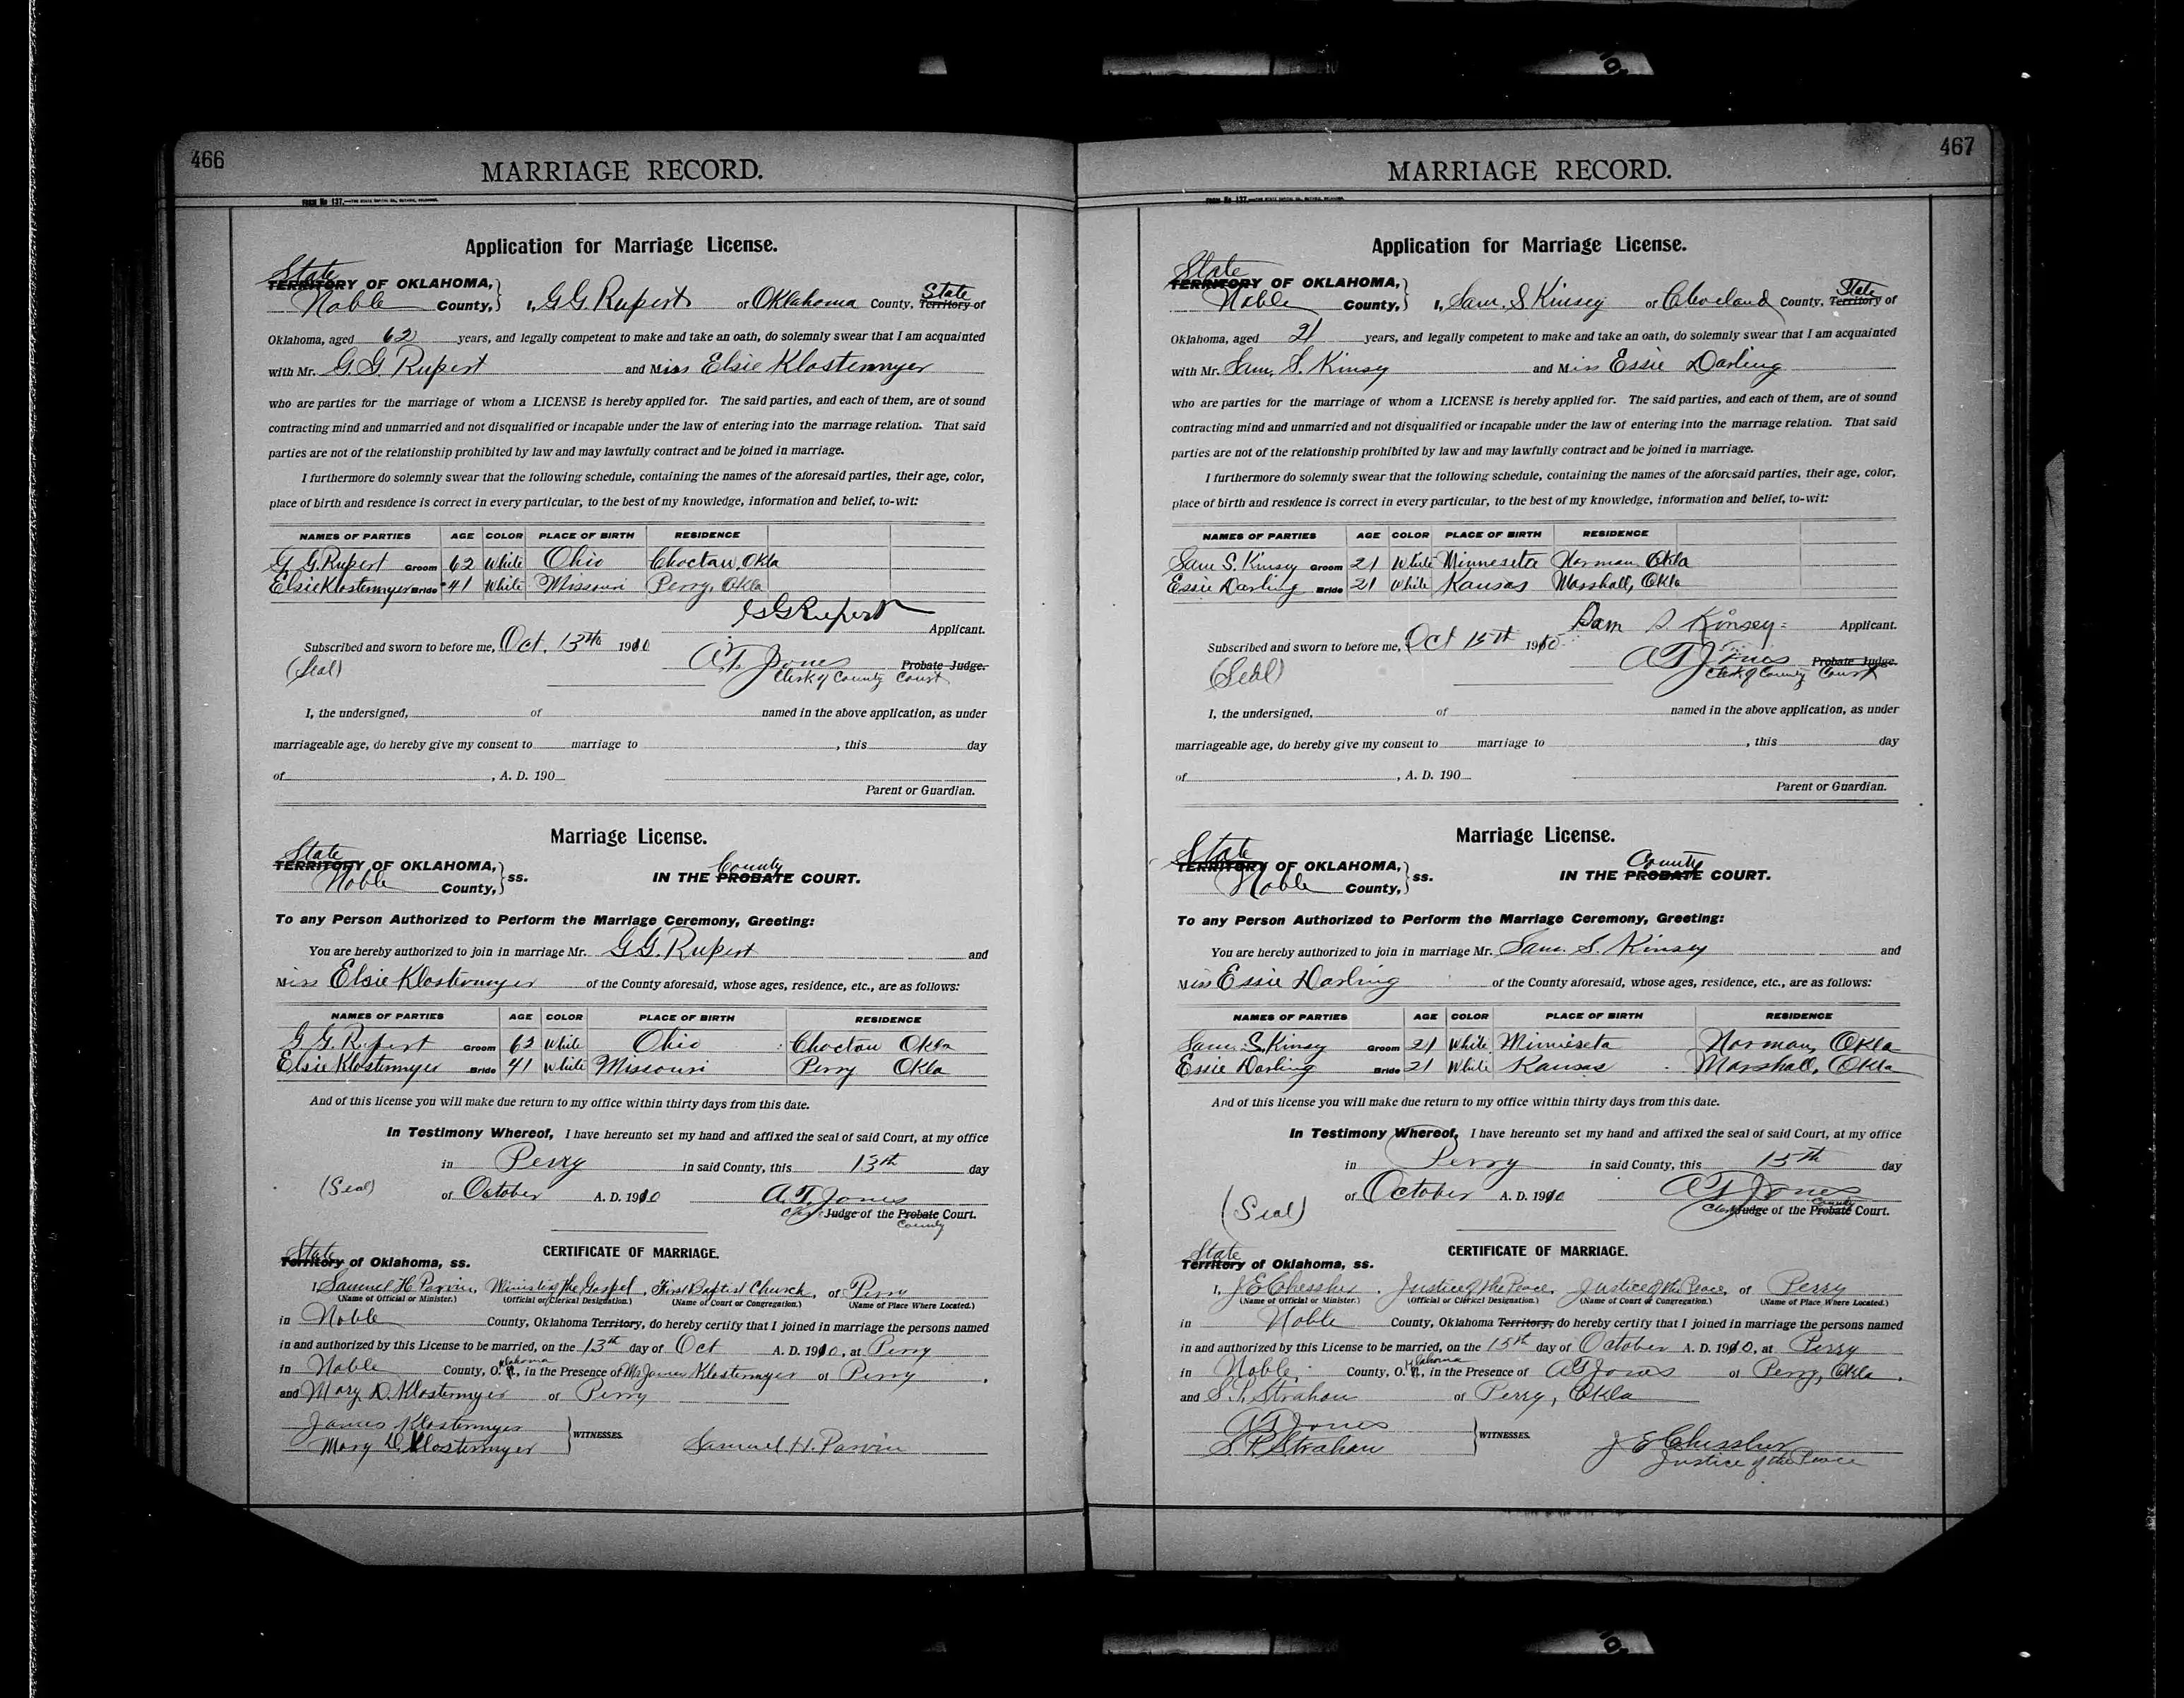 466
MARRIAGE RECORD.
Application for Marriage License.
State
TERRITORY OF OKLAHOMA,
Noble County, I, G G Rupert of Oklahoma County, State Territory of
Oklahoma, aged 62 years, and legally competent to make and take an oath, do solemnly swear that I am acquainted
with Mr. G. G. Rupert and Miss Elsie Klostermyer
who are parties for the marriage of whom a LICENSE is hereby applied for. The said parties, and each of them, are of sound
contracting mind and unmarried and not disqualified or incapable under the law of entering into the marriage relation. That said
parties are not of the relationship prohibited by law and may lawfully contract and be joined in marriage.
I furthermore do solemnly swear that the following schedule, containing the names of the aforesaid parties, their age, color,
place of birth and residence is correct in every particular, to the best of my knowledge, information and belief, to-wit:
NAMES OF PARTIES AGE COLOR PLACE OF BIRTH RESIDENCE
G G. Rupert Groom 62 White Ohio Choctaw, Okla
Elsie Klostermyer Bride 41 White Missouri Perry, Okla
G G Rupert
Applicant.
Subscribed and sworn to before me, Oct. 13th 1910
(Seal) A. T. Jones Probate Judge.
Clerk of County Court
I, the undersigned, of named in the above application, as under
marriageable age, do hereby give my consent to marriage to , this day
of , A. D. 190
Parent or Guardian.
Marriage License.
State
TERRITORY OF OKLAHOMA, ss.
Noble County, IN THE PROBATE County COURT.
To any Person Authorized to Perform the Marriage Ceremony, Greeting:
You are hereby authorized to join in marriage Mr. G G. Rupert and
Miss Elsie Klostermyer of the County aforesaid, whose ages, residence, etc., are as follows:
NAMES OF PARTIES AGE COLOR PLACE OF BIRTH RESIDENCE
G. G. Rupert Groom 62 White Ohio Choctaw Okla
Elsie Klostermyer Bride 41 White Missouri Perry Okla
And of this license you will make due return to my office within thirty days from this date.
In Testimony Whereof, I have hereunto set my hand and affixed the seal of said Court, at my office
in Perry in said County, this 13th day
(Seal) of October A. D. 1910 A. T. Jones
Judge of the Probate Court.
County
CERTIFICATE OF MARRIAGE.
State
Territory of Oklahoma, ss.
I, Samuel H. Parvin, Minister of the Gospel, First Baptist Church, of Perry
(Name of Official or Minister.) (Official or Clerical Designation.) (Name of Court or Congregation.) (Name of Place Where Located.)
in Noble County, Oklahoma Territory, do hereby certify that I joined in marriage the persons named
in and authorized by this License to be married, on the 13th day of Oct A. D. 1910, at Perry
in Noble County, Oklahoma, in the Presence of Mr James Klostermyer of Perry
and Mary D. Klostermyer of Perry
James Klostermyer
Mary D. Klostermyer WITNESSES. Samuel H. Parvin
467
MARRIAGE RECORD.
Application for Marriage License.
State
TERRITORY OF OKLAHOMA,
Noble County, I, Sam. S Kinsey of Cleveland County, State Territory of
Oklahoma, aged 21 years, and legally competent to make and take an oath, do solemnly swear that I am acquainted
with Mr. Sam. S. Kinsy and Miss Essie Darling
who are parties for the marriage of whom a LICENSE is hereby applied for. The said parties, and each of them, are of sound
contracting mind and unmarried and not disqualified or incapable under the law of entering into the marriage relation. That said
parties are not of the relationship prohibited by law and may lawfully contract and be joined in marriage.
I furthermore do solemnly swear that the following schedule, containing the names of the aforesaid parties, their age, color,
place of birth and residence is correct in every particular, to the best of my knowledge, information and belief, to-wit:
NAMES OF PARTIES AGE COLOR PLACE OF BIRTH RESIDENCE
Sam S. Kinsy Groom 21 White Minneseta Norman, Okla
Essie Darling Bride 21 White Kansas Marshall, Okla
Sam S. Kinsey Applicant.
Subscribed and sworn to before me, Oct 15th 1910
(Seal) A T Jones Probate Judge.
Clerk of County Court
I, the undersigned, of named in the above application, as under
marriageable age, do hereby give my consent to marriage to , this day
of , A. D. 190
Parent or Guardian.
Marriage License.
State
TERRITORY OF OKLAHOMA, ss.
Noble County, IN THE PROBATE County COURT.
To any Person Authorized to Perform the Marriage Ceremony, Greeting:
You are hereby authorized to join in marriage Mr. Sam. S. Kinsey and
Miss Essie Darling of the County aforesaid, whose ages, residence, etc., are as follows:
NAMES OF PARTIES AGE COLOR PLACE OF BIRTH RESIDENCE
Sam. S. Kinsy Groom 21 White Minneseta Norman, Okla
Essie Darling Bride 21 White Kansas Marshall, Okla
And of this license you will make due return to my office within thirty days from this date.
In Testimony Whereof, I have hereunto set my hand and affixed the seal of said Court, at my office
in Perry in said County, this 15th day
(Seal) of October A. D. 1910 A T Jones
Clerk Judge of the Probate County Court.
CERTIFICATE OF MARRIAGE.
State
Territory of Oklahoma, ss.
I, J E Chessher, Justice of the Peace, Justice of the Peace, of Perry
(Name of Official or Minister.) (Official or Clerical Designation.) (Name of Court or Congregation.) (Name of Place Where Located.)
in Noble County, Oklahoma Territory, do hereby certify that I joined in marriage the persons named
in and authorized by this License to be married, on the 15th day of October A. D. 1910, at Perry
in Noble County, Oklahoma, in the Presence of A T Jones of Perry, Okla.
and S. P. Strahan of Perry, Okla
A T Jones
S. P. Strahan WITNESSES. J E Chessher
Justice of the Peace